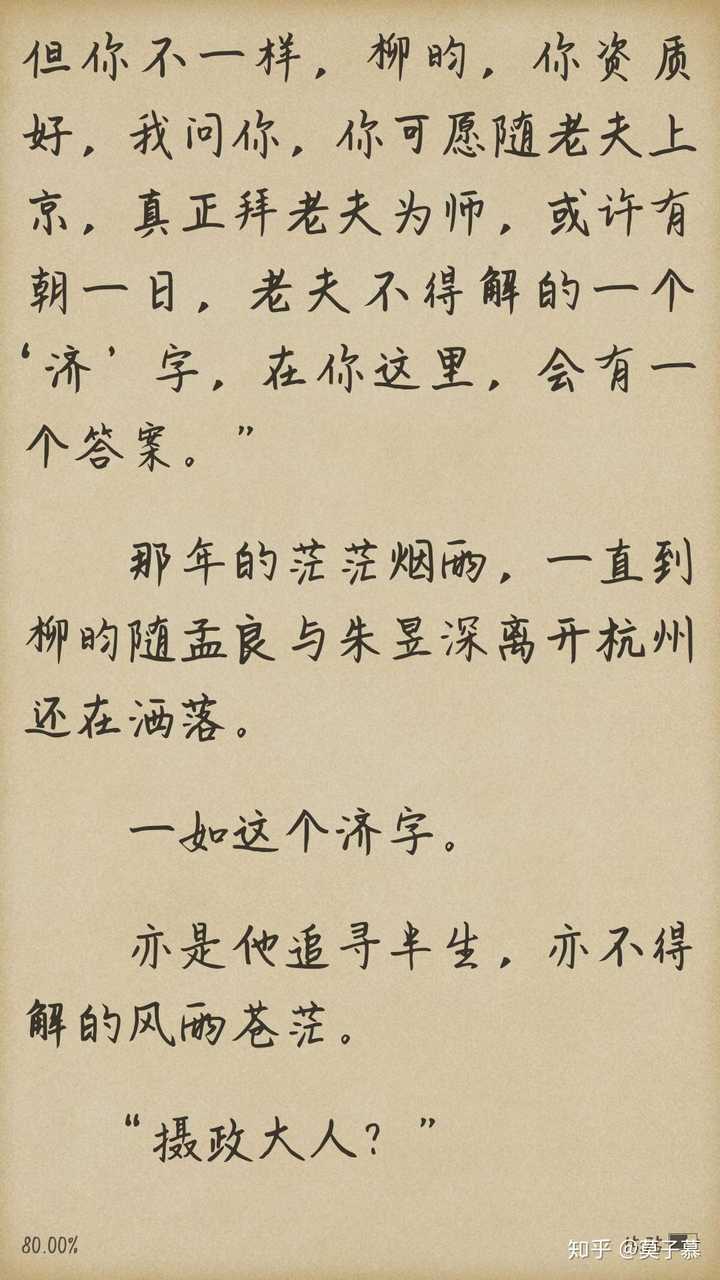 但你不一样，柳昀，你资质
好，我问你，你可愿随老夫上
京，真正拜老夫为师，或许有
朝一日，老夫不得解的一个
‘济’字，在你这里，会有一
个答案。”
那年的茫茫烟雨，一直到
柳昀随孟良与朱昱深离开杭州
还在洒落。
一如这个济字。
亦是他追寻半生，亦不得
解的风雨苍茫。
“摄政大人？”
80.00%
知乎 @莫子慕